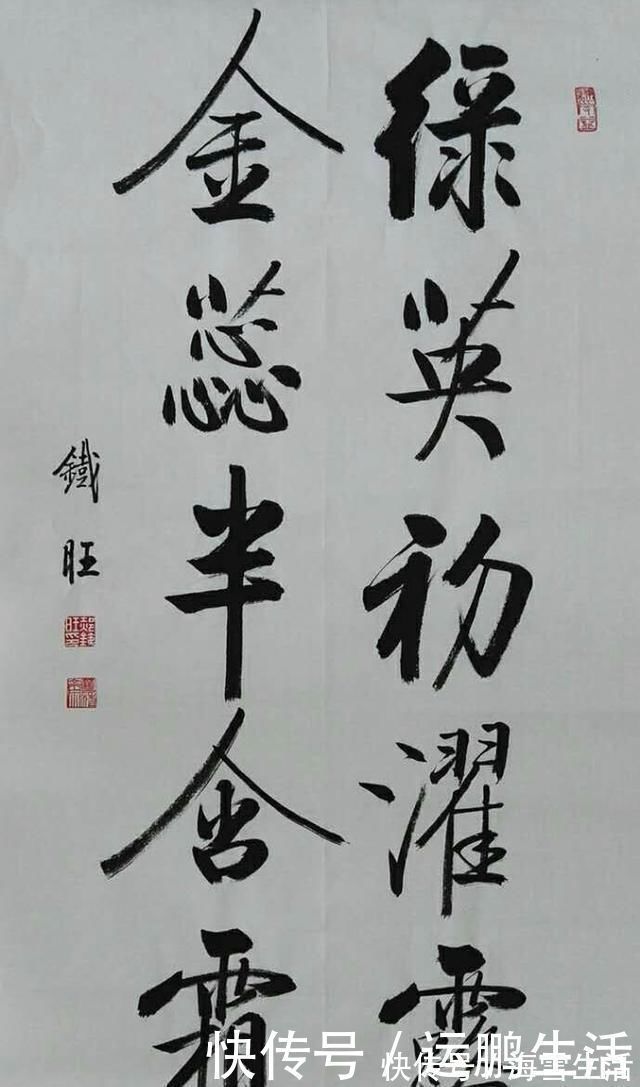 绿英初濯露
金蕊半含霜
鐵旺
快传号 / 运鹏生活
快传号 / 海雪生活